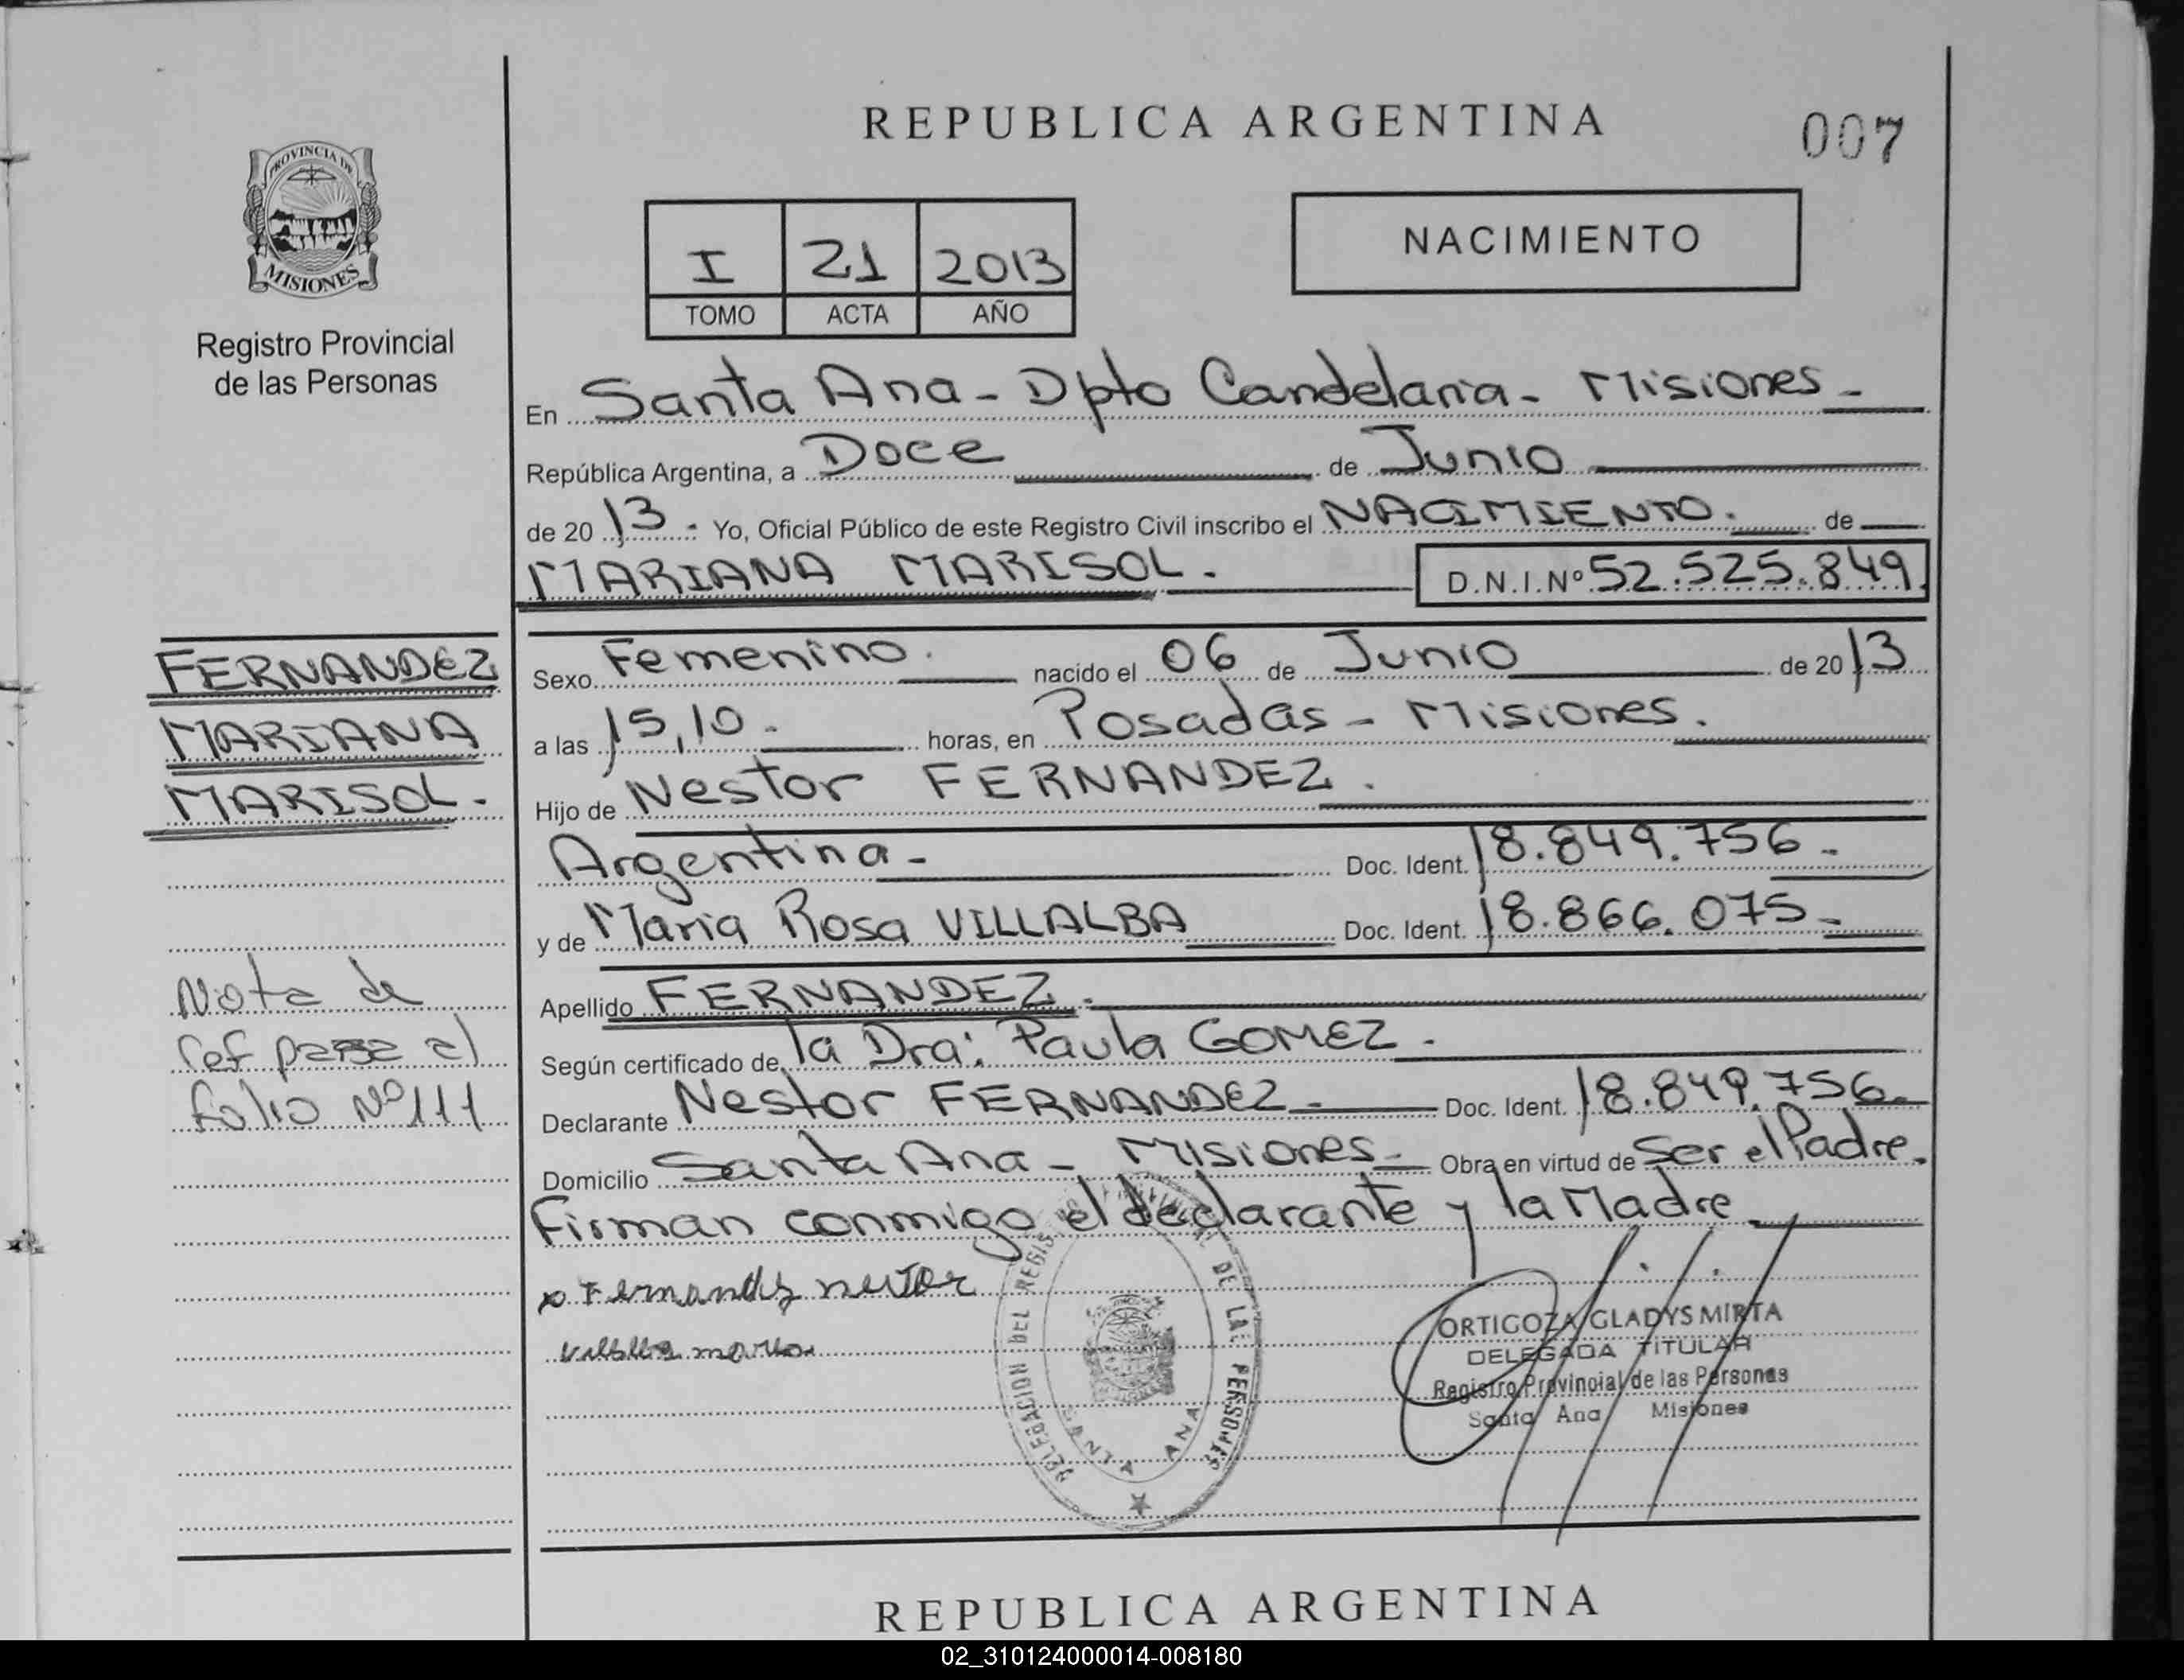 REPUBLICA ARGENTINA
007
PROVINCIA DE
MISIONES
Registro Provincial
de las Personas
I 21 2013
TOMO ACTA AÑO
NACIMIENTO
En Santa Ana - Dpto Candelaria - Misiones -
República Argentina, a Doce de Junio
de 20 13. Yo, Oficial Público de este Registro Civil inscribo el NACIMIENTO. de
MARIANA MARISOL. D.N.I.Nº 52.525.849
FERNANDEZ
MARIANA
MARISOL.
Sexo Femenino. nacido el 06 de Junio de 20 13
a las 15,10. horas, en Posadas - Misiones.
Hijo de Nestor FERNANDEZ.
Argentina - Doc. Ident. 18.849.756 -
y de Maria Rosa VILLALBA Doc. Ident. 18.866.075 -
Apellido FERNANDEZ.
Según certificado de la Dra: Paula GOMEZ.
Declarante Nestor FERNANDEZ - Doc. Ident. 18.849.756 -
Domicilio Santa Ana - Misiones - Obra en virtud de Ser el Padre.
Firman conmigo el declarante y la Madre.
Nota de
ref pasa al
folio Nº 111
x Fernandez nestor
DELEGACION DEL REGISTRO PROVINCIAL DE LAS PERSONAS
SANTA ANA
ORTIGOZA GLADYS MIRTA
DELEGADA TITULAR
Registro Provincial de las Personas
Santa Ana Misiones
REPUBLICA ARGENTINA
02_310124000014-008180